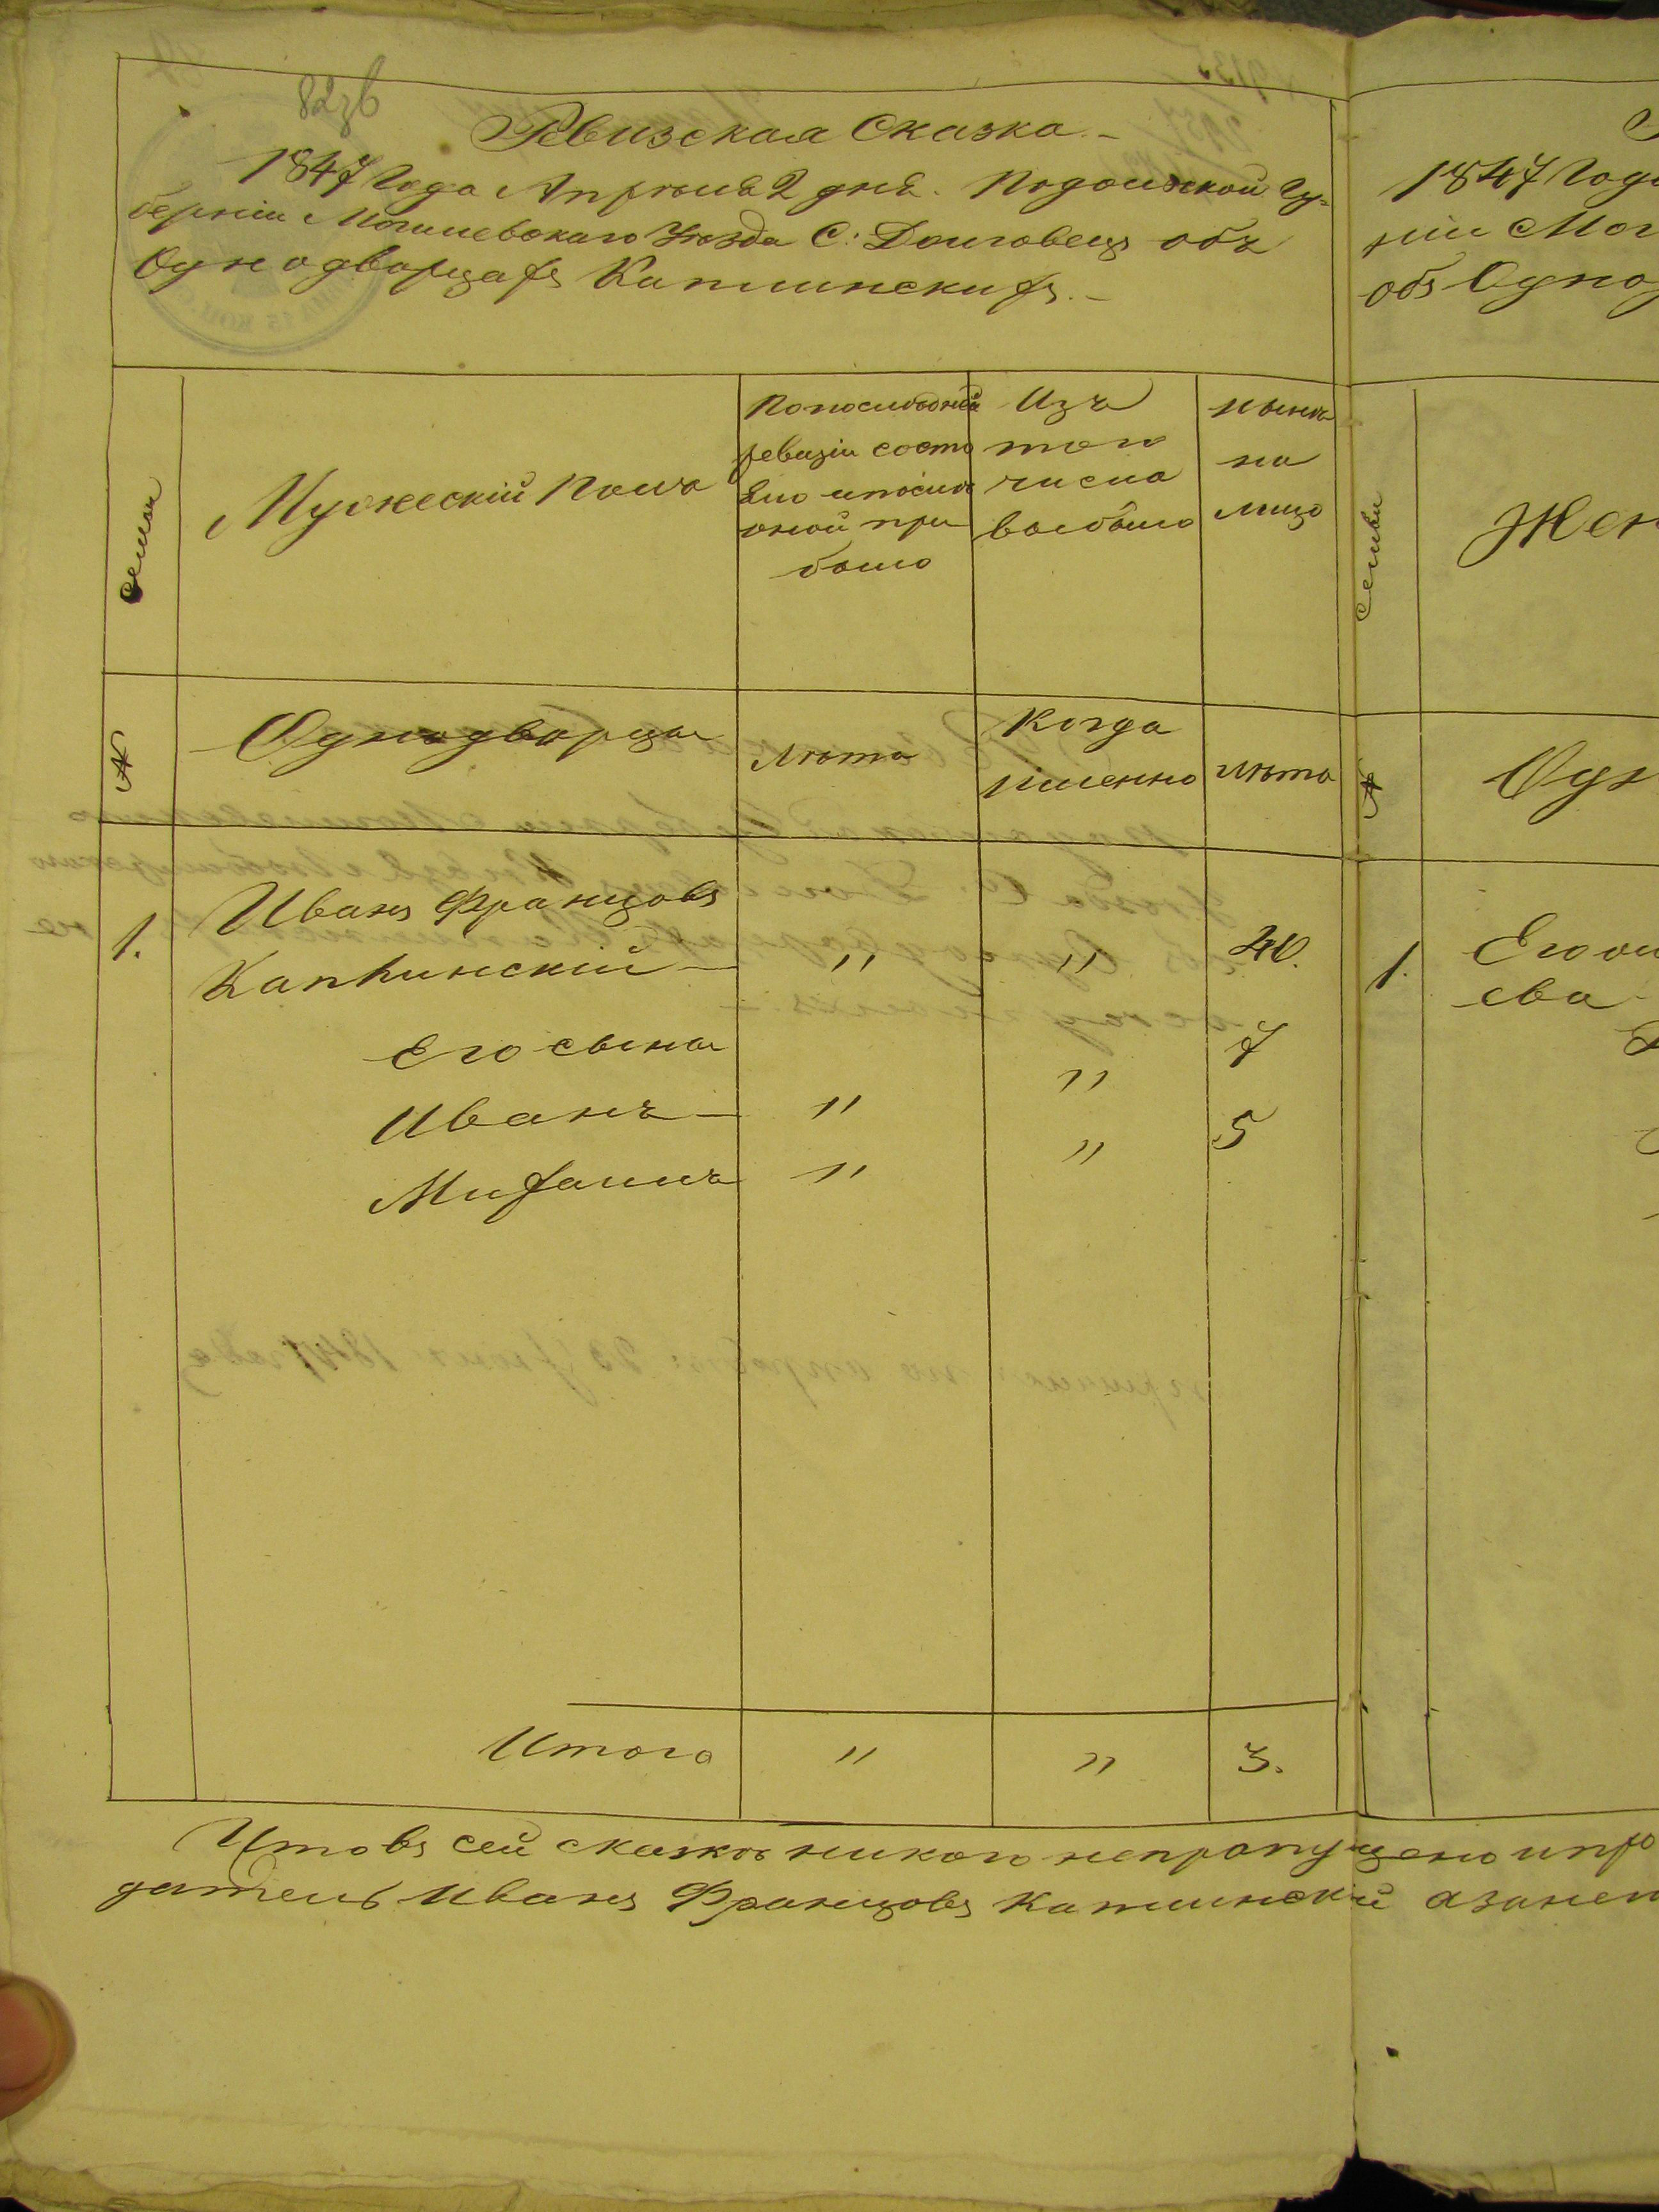 82зв
Ревизская Сказка.-
1847 Года Апрѣля 2 дня. Подольской Гу-
берніи Могилевскаго Уѣзда С: Долговецъ объ
Однодворцахъ Каплинскихъ.-
Семьи
Мужескій Полъ
По послѣдней
ревизіи состо
яло и послѣ
оной при
было
Изъ
того
числа
выбыло
нынѣ
на
лицо
№
Однодворцы
лѣта
Когда
именно
лѣта
1.
Иванъ Францовъ
Каплинскій - " " 40.
Его сыны
Иванъ - " " 7
Михаилъ " " 5
Итого " " 3.
Что въ сей сказкѣ никого непропущено ипро
датель Иванъ Францовъ Каплинскій азанеп
1847 Года
ніи Мог
объ Одно
Семьи
Жен
№
Одн
1.
ева